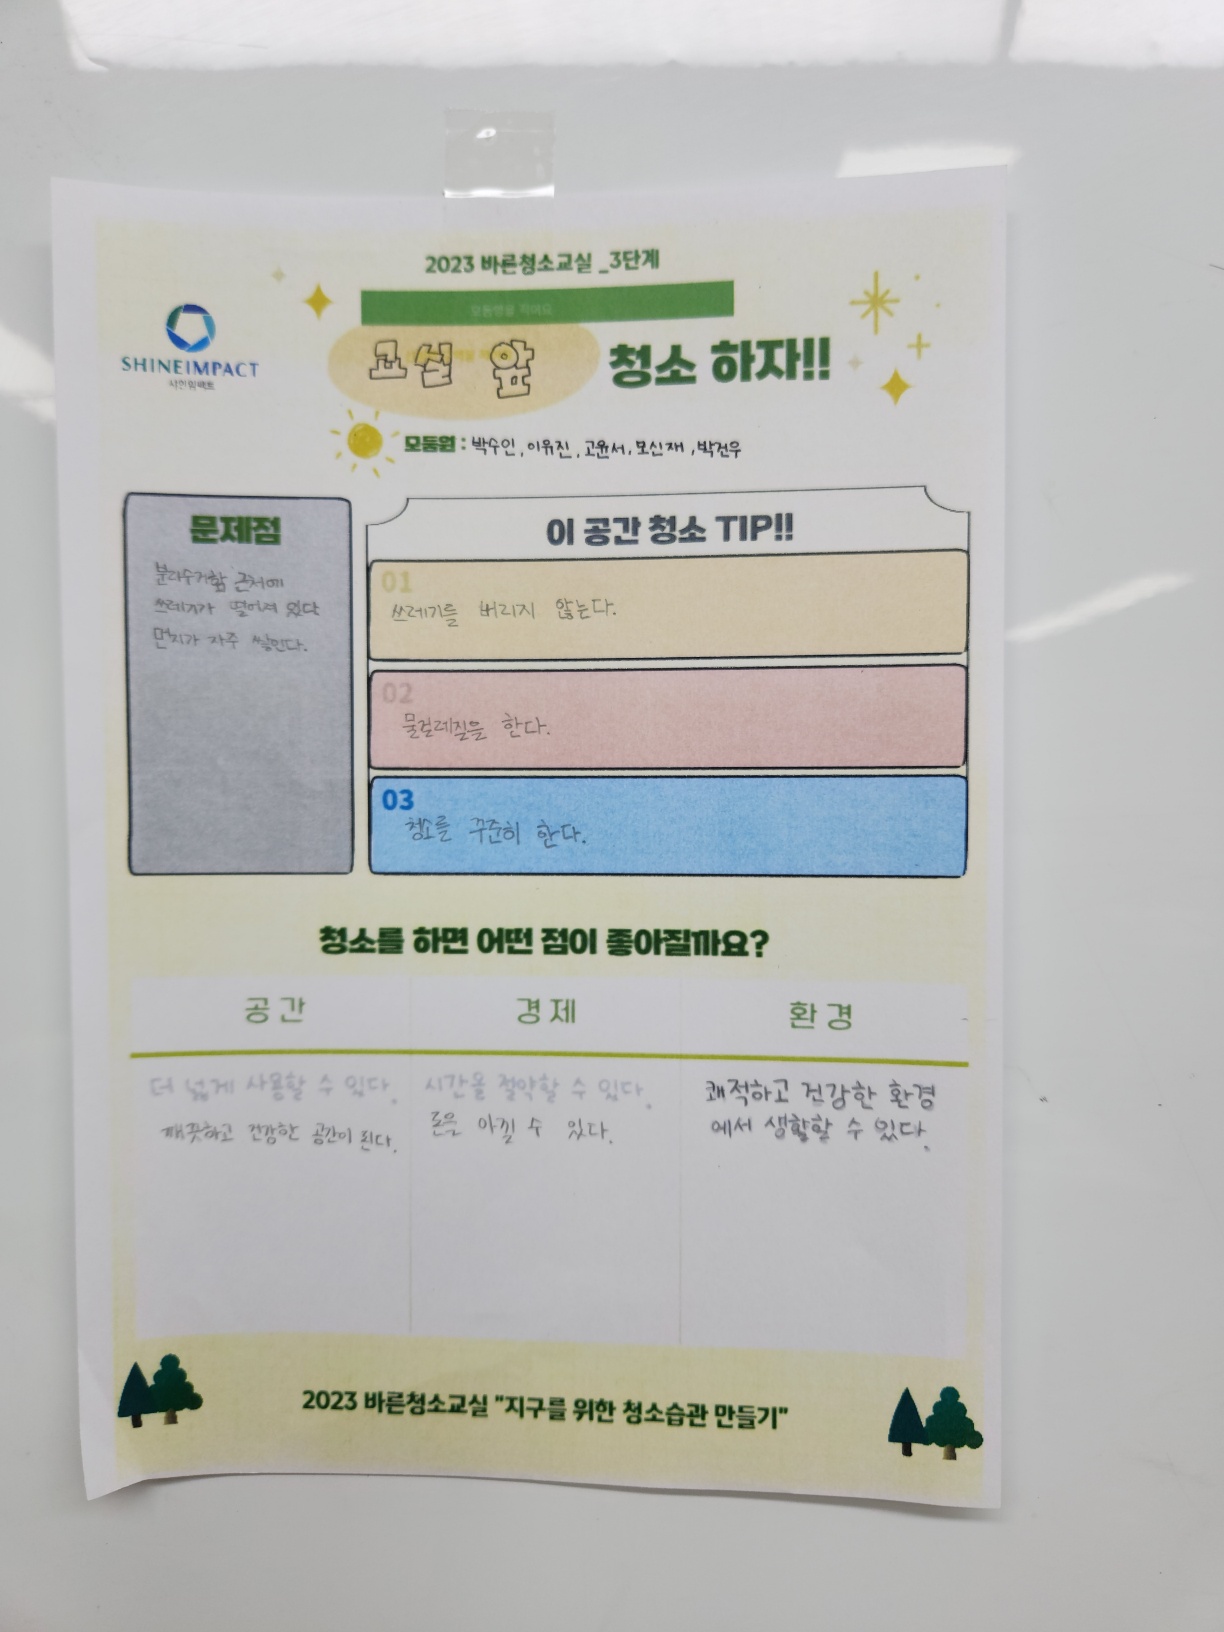 2023 바른청소교실 _3단계
모둠명을 지어요
SHINEIMPACT
샤인임팩트
교실 앞 청소 하자!!
모둠원 : 박수인, 이유진, 고윤서, 모신재, 박건우
문제점
분리수거함 근처에
쓰레기가 떨어져 있다
먼지가 자주 쌓인다.
이 공간 청소 TIP!!
01
쓰레기를 버리지 않는다.
02
물걸레질을 한다.
03
청소를 꾸준히 한다.
청소를 하면 어떤 점이 좋아질까요?
공간
경제
환경
더 넓게 사용할 수 있다.
깨끗하고 건강한 공간이 된다.
시간을 절약할 수 있다.
돈을 아낄 수 있다.
쾌적하고 건강한 환경
에서 생활할 수 있다.
2023 바른청소교실 "지구를 위한 청소습관 만들기"